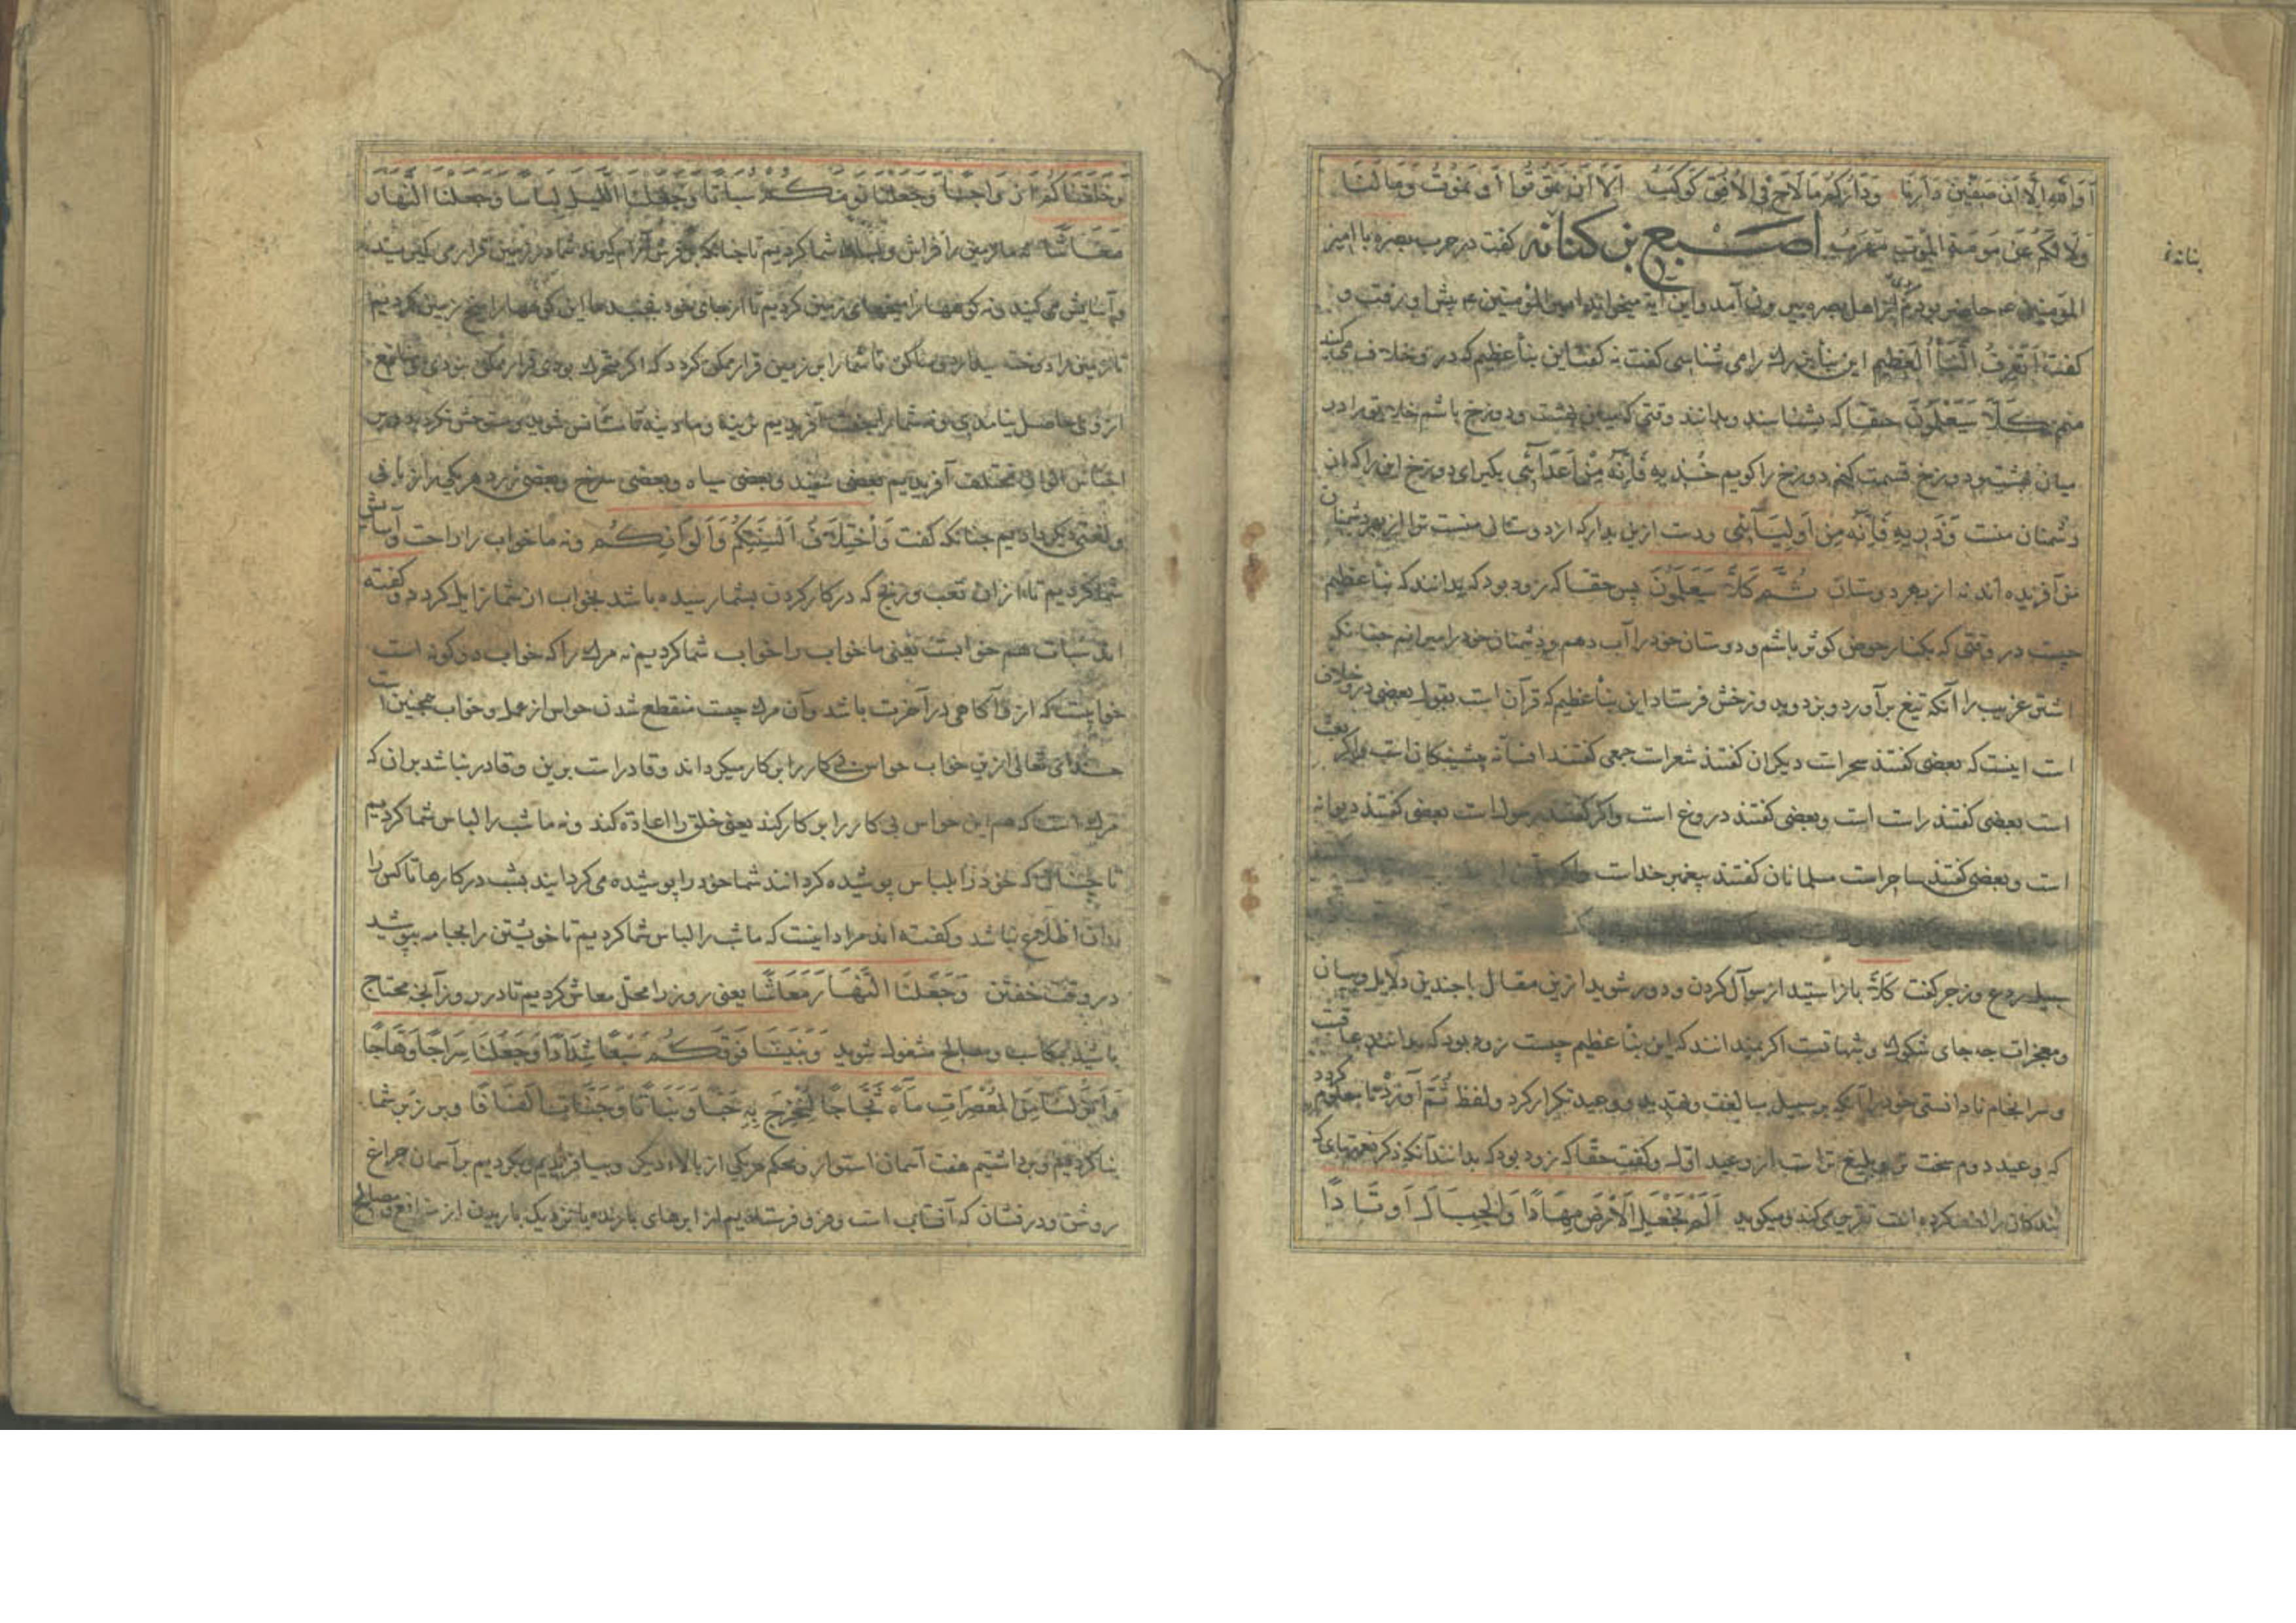 اَوَ اَللهِ اِلَّا اَنَّ صِفِّینَ دَارُنَا وَدَارُکُم مَا لَاحَ فِی الْاُفُقِ کَوکَبٌ اِلَا اَنْ تَمُوتُوا اَو نَمُوتَ وَمَا لَنَا
وَلَا لَکُم عَن حَومَةِ المَوتِ مَهرَبٌ اصبغ بن کنانه کفت در حرب بصره با امیر
بنانه
المؤمنین ع حاضر بودم از اهل بصره بیرون آمد و این آیه میخواند امیر المؤمنین ع پیش او رفت و
کفت اَتَعرِفُ النَّبَأَ العَظِیمِ این نبأ بزرك را می شناسی کفت نه کفت این نبأ عظیم که درو خلاف می کنند
منم کَلَّا سَیَعْلَمُونَ حقا که بشناسند و بدانند وقتی که میان بهشت و دوزخ باشم خلایق را در
میان بهشت و دوزخ قسمت کنم دوزخ را کویم خُذِیهِ فَاِنَّهُ مِنْ اَعدَآئِی بکیر ای دوزخ این را که از
دشمنان منست وَذَرِیهِ فَاِنَّهُ مِن اَولِیَآئِی ودست ازین بدار که از دوستانی منست ترا از بهر دشمنان
من آفریده اند نه از بهر دوستان ثُمَّ کَلَّا سَیَعلَمُونَ پس حقا که زود بود که بدانند که نبأ عظیم
چیست در وقتی که بکنار حوض کوثر باشم و دوستان خود را آب دهم و دشمنان خود را میرانم چنانکه
اشتر غریب را آنکه تیغ بر آورد و بزد وبدوزخش فرستاد این نبأ عظیم که قرآن است بقول بعضی درو خلاف
است اینست که بعضی کفتند سحر است دیکران کفتند شعر است جمعی کفتند افسانه پیشینکان است
است بعضی کفتند راست است وبعضی کفتند دروغ است واکر کفتند رسول است بعضی کفتند دیوانه
است وبعضی کفتند ساحر است مسلمانان کفتند پیغمبر خداست
سبیل ردع وزجر کفت کَلَّا بازایستید از سوآل کردن و دور شوید ازین مقال با چندین دلایل وبیان
ومعجزات چه جای شکوك و شبهاتست اکر نمیدانند که این نبأ عظیم چیست زود بود که بدانند عاقبت
وسرانجام نادانستی خود را آنکه بر سبیل مبالغت وتهدید ووعید تکرار کرد ولفظ ثُمَّ آورد تا معلوم کردد
که وعید دوم سخت تر وبلیغ تر است از وعید اول وکفت حقا که زود بود که بدانند آنکه ذکر نعمتهای که
بندکانرا کرده است تقریر می کند ومیکوید اَلَمْ نَجْعَلِ الْاَرْضَ مِهَادًا وَالْجِبَالَ اَوتَادًا
وَخَلَقْنَاکُمْ اَزْوَاجًا وَجَعَلْنَا نَومَکُم سُبَاتًا وَجَعَلْنَا اللَّیْلَ لِبَاسًا وَجَعَلْنَا النَّهَارَ
مَعَاشًا نه ما زمین را فراش شما کردیم تا چنانکه بر فرش آرام کیرند شما در زمین قرار می کیرید
وآسایش می کنید ونه کوهها را میخهای زمین کردیم تا از جای خود نجنبد ما این کوهها را میخ زمین کردیم
تا زمین را دوخته بیکار وساکن تا شما را بر زمین قرار ممکن کردد که اکر متحرك بودی قرار ممکن نبودی
از وی حاصل نیامدی ونه شما را جفت آفریدیم نرینه ومادینه تا مستأنس شوید ومتوحش نکردید
اجناس الوان مختلف آفریدیم بعضی سفید وبعضی سیاه وبعضی سرخ وبعضی زرد هر یکی را زبانی
ولغتی دیکر دادیم چنانکه کفت وَاخْتِلَافُ اَلْسِنَتِکُمْ وَاَلْوَانِکُمْ ونه ما خواب را راحت وآسایش
شما کردیم تا از آن تعب ورنج که در کار کردن بشما رسیده باشد بخواب آن شما زایل کردد وکفته
اند سبات هم خوابست یعنی ما خواب را خواب شما کردیم نه مرك را که خواب دو کونه است
خوابیست که از و آکاهی در آخرت باشد وآن مرك چیست منقطع شدن حواس از عمل وخواب همچنین است
خدای تعالی ازین خواب حواس بی کار را بر کار میکرداند وقادر است برین وقادر نباشد بر آن که
مرك است که هم این حواس بی کار را بر کار کند یعنی خلق را اعادة کند ونه ما شب را لباس شما کردیم
تا چنان که خود را بلباس پوشیده کردانند شما خود را پوشیده می کردانید بشب در کارها تا کس را
بدان اطلاع نباشد وکفته اند مراد اینست که ما شب را لباس شما کردیم تا خویشتن را بجامه بپوشید
در وقت خفتن وَجَعَلْنَا النَّهَارَ مَعَاشًا یعنی روز را محل معاش کردیم تا در روز آنچه محتاج
باشید بمکاسب ومصالح مشغول شوید وَبَنَیْنَا فَوْقَکُمْ سَبْعًا شِدَادًا وَجَعَلْنَا سِرَاجًا وَهَّاجًا
وَاَنْزَلْنَا مِنَ الْمُعْصِرَاتِ مَاءً ثَجَّاجًا لِنُخْرِجَ بِهِ حَبًّا وَنَبَاتًا وَجَنَّاتٍ اَلْفَافًا وبر زبر شما
بنا کردیم وبر داشتیم هفت آسمان استوار ومحکم هر یکی از بالاء دیکر وبیافریدیم وبکردیم بر آسمان چراغ
روشن ودرفشان که آفتاب است وفرو فرستادیم از ابرهای بارنده یا نزدیك باریدن